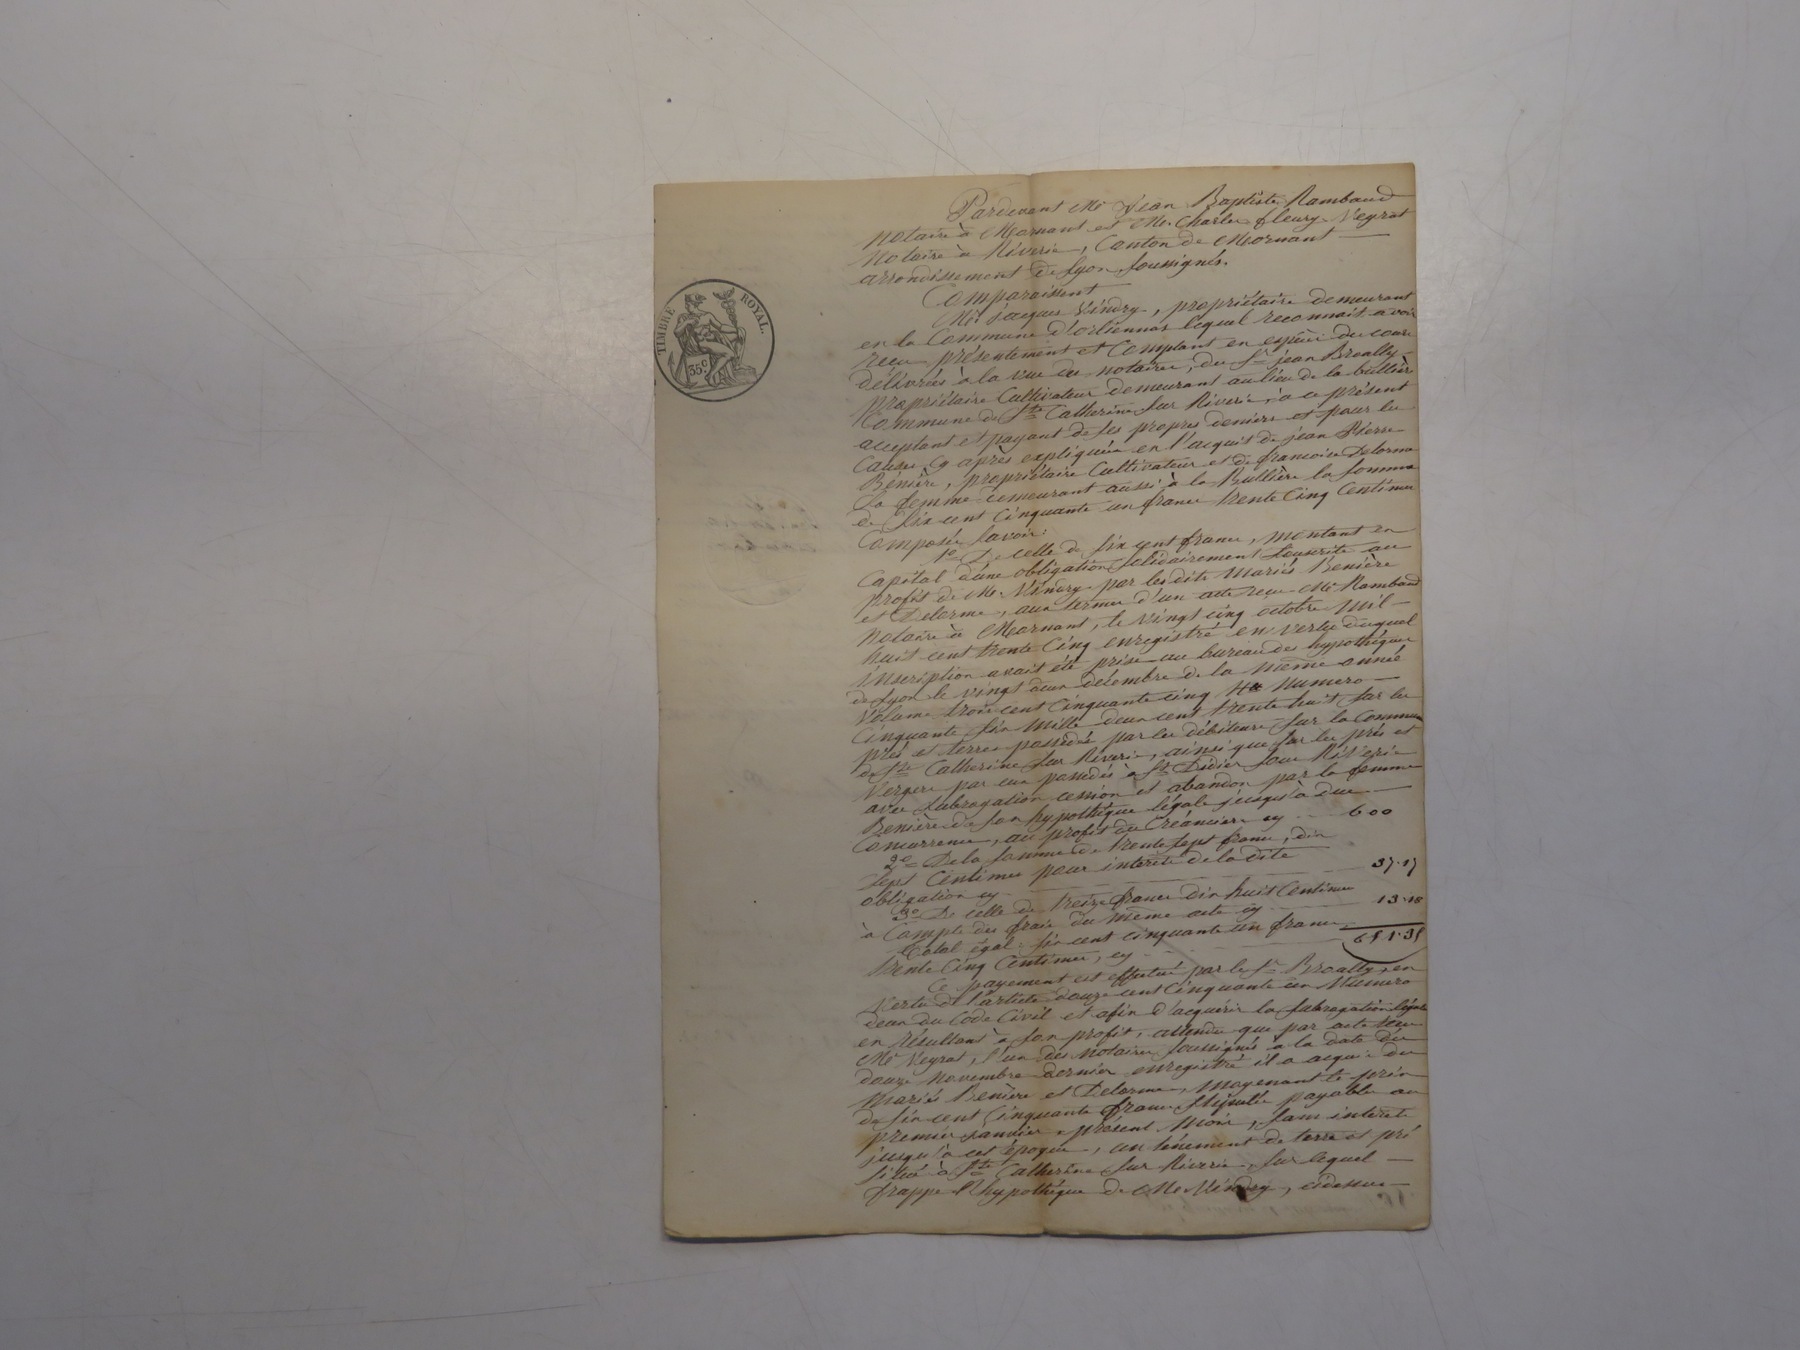 TIMBRE ROYAL.
35 c
Pardevant Me Jean Baptiste Rambaud
notaire à Mornant et Me Charles fleury Veyrat
notaire à Riverie, Canton de Mornant
arrondissement de Lyon soussignés.
Comparaissent
Mr Jacques Vindry, propriétaire demeurant
en la Commune d'orliennas lequel reconnait avoir
reçu présentement et Comptant en espèces de cours
délivrées à la vue des notaires, du Sr jean Broally
propriétaire Cultivateur demeurant au lieu de la bullière
Commune de Ste Catherine sur Riverie, à ce présent
acceptant et payant de ses propres deniers et pour les
Causes cy après expliquées en l'acquit de jean Pierre
Benière, propriétaire Cultivateur et de francoise Delorme
sa femme demeurant aussi à la Bullière la somme
de six cent Cinquante un francs trente Cinq Centimes
Composée savoir:
1o De celle de six cent francs, montant en
Capital d'une obligation solidairement souscrite au
profit de Mr Vindry par les dits mariés Benière
et Delorme, aux termes d'un acte reçu Me Rambaud
notaire à Mornant, le vingt cinq octobre mil
huit cent trente Cinq enregistré en vertu duquel
inscription avait été prise au bureau des hypothèques
de Lyon le vingt deux décembre de la même année
Volume trois cent Cinquante cinq numero
Cinquante six mille deux cent trente huit sur les
prés et terres possédés par les débiteurs sur la Commune
de Ste Catherine sur Riverie, ainsi que sur les prés et
Vergers par eux possédés à St Didier sous Riverie
avec subrogation cession et abandon par la femme
Benière de son hypothèque légale jusqu'à due
Concurrence, au profit du Créancier cy 600
2o De la somme de trente sept francs, dix
sept Centimes pour intérêts de la dite
obligation cy 37.17
3o De celle de treize francs dix huit Centimes
à Compte des frais du même acte cy 13.18
Total égal: six cent cinquante un francs
trente Cinq Centimes, cy 651.35
Ce payement est effectué par le Sr Broally, en
vertu de l'article douze cent Cinquante un Numero
deux du Code Civil et afin d'acquérir la subrogation légale
en résultant à son profit, attendu que par acte reçu
Me Veyrat, l'un des notaires soussignés à la date du
douze novembre dernier enregistré il a acquis des
mariés Benière et Delorme, moyenant le prix
de six cent Cinquante francs stipulés payable au
premier janvier présent mois, sans intérêts
jusqu'à cet époque, un ténement de terre et pré
situé à Ste Catherine sur Riverie, sur lequel
frappe l'hypothèque de Mr Vindry, cidessus